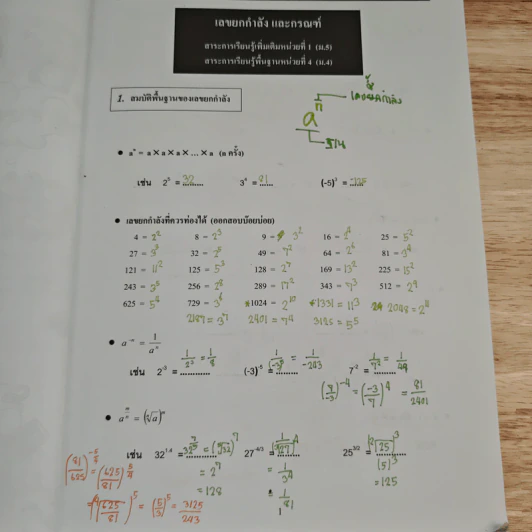 เลขยกกำลัง และกรณฑ์
สาระการเรียนรู้เพิ่มเติมหน่วยที่ 1 (ม.5)
สาระการเรียนรู้พื้นฐานหน่วยที่ 4 (ม.4)
1. สมบัติพื้นฐานของเลขยกกำลัง
เลขยกกำลัง
aⁿ
ฐาน
• aⁿ = a × a × a × ... × a (n ครั้ง)
เช่น 2⁵ = 32 3⁴ = 81 (-5)³ = -125
• เลขยกกำลังที่ควรท่องได้ (ออกสอบบ่อยบ่อย)
4 = 2² 8 = 2³ 9 = 3² 16 = 2⁴ 25 = 5²
27 = 3³ 32 = 2⁵ 49 = 7² 64 = 2⁶ 81 = 3⁴
121 = 11² 125 = 5³ 128 = 2⁷ 169 = 13² 225 = 15²
243 = 3⁵ 256 = 2⁸ 289 = 17² 343 = 7³ 512 = 2⁹
625 = 5⁴ 729 = 3⁶ *1024 = 2¹⁰ *1331 = 11³
2187 = 3⁷ 2401 = 7⁴ 3125 = 5⁵
• a⁻ⁿ = 1/aⁿ
เช่น 2⁻³ = 1/2³ = 1/8 (-3)⁻⁵ = 1/(-3)⁵ = 1/-243 7⁻² = 1/7² = 1/49
(7/-3)⁻⁴ = (-3/7)⁴ = 81/2401
• a^(m/n) = (ⁿ√a)ᵐ
เช่น 32^1.4 = 32^(7/5) = (⁵√32)⁷
= 2⁷
= 128
= 1/3⁴
= 1/81
25^(3/2) = (²√25)³
(5)³
= 125
(81/625)^(-5/4) = (625/81)^(5/4)
= (⁴√(625/81))⁵ = (5/3)⁵ = 3125/243
1